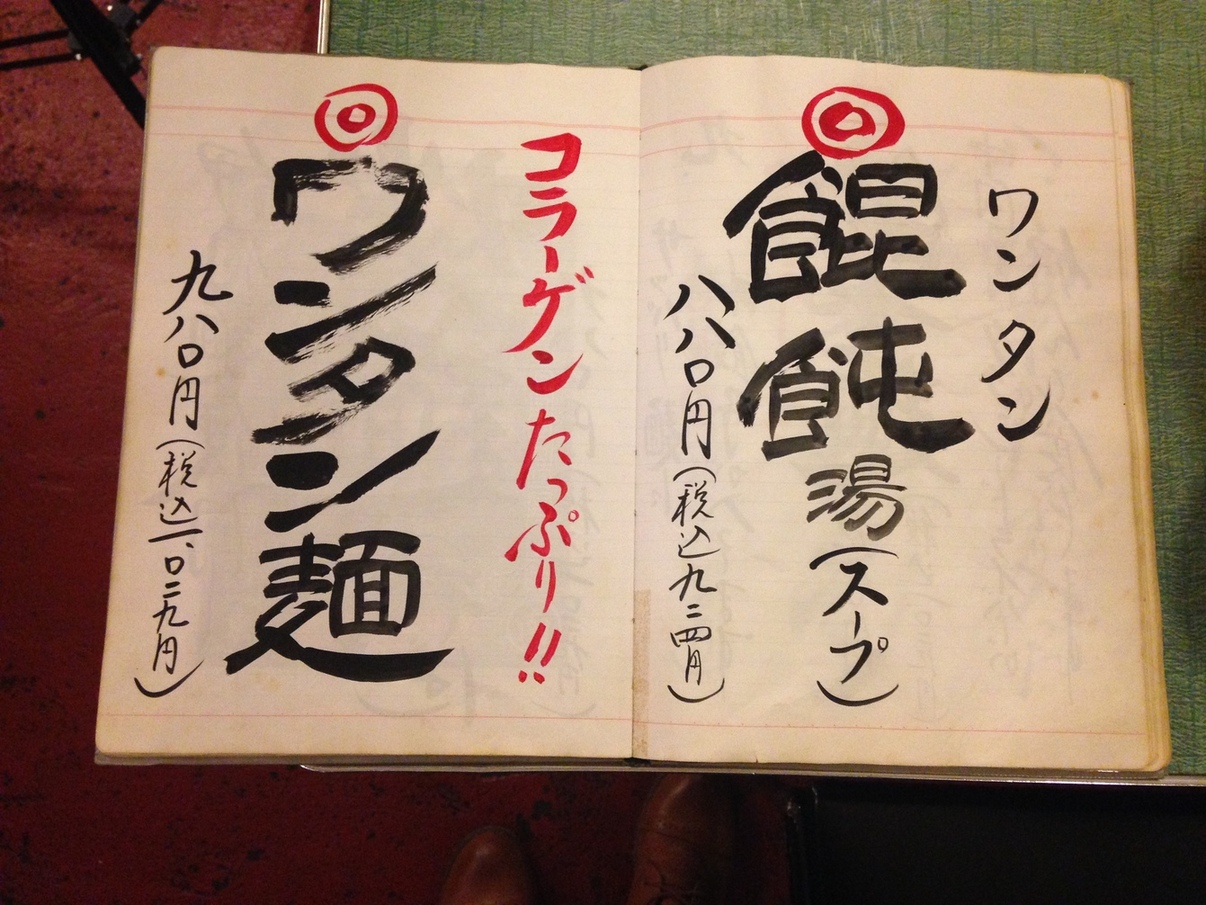 ワンタン
◎餛飩湯(スープ)
八八〇円(税込九二四円)
コラーゲンたっぷり!!
◎ワンタン麺
九八〇円(税込一、〇二九円)